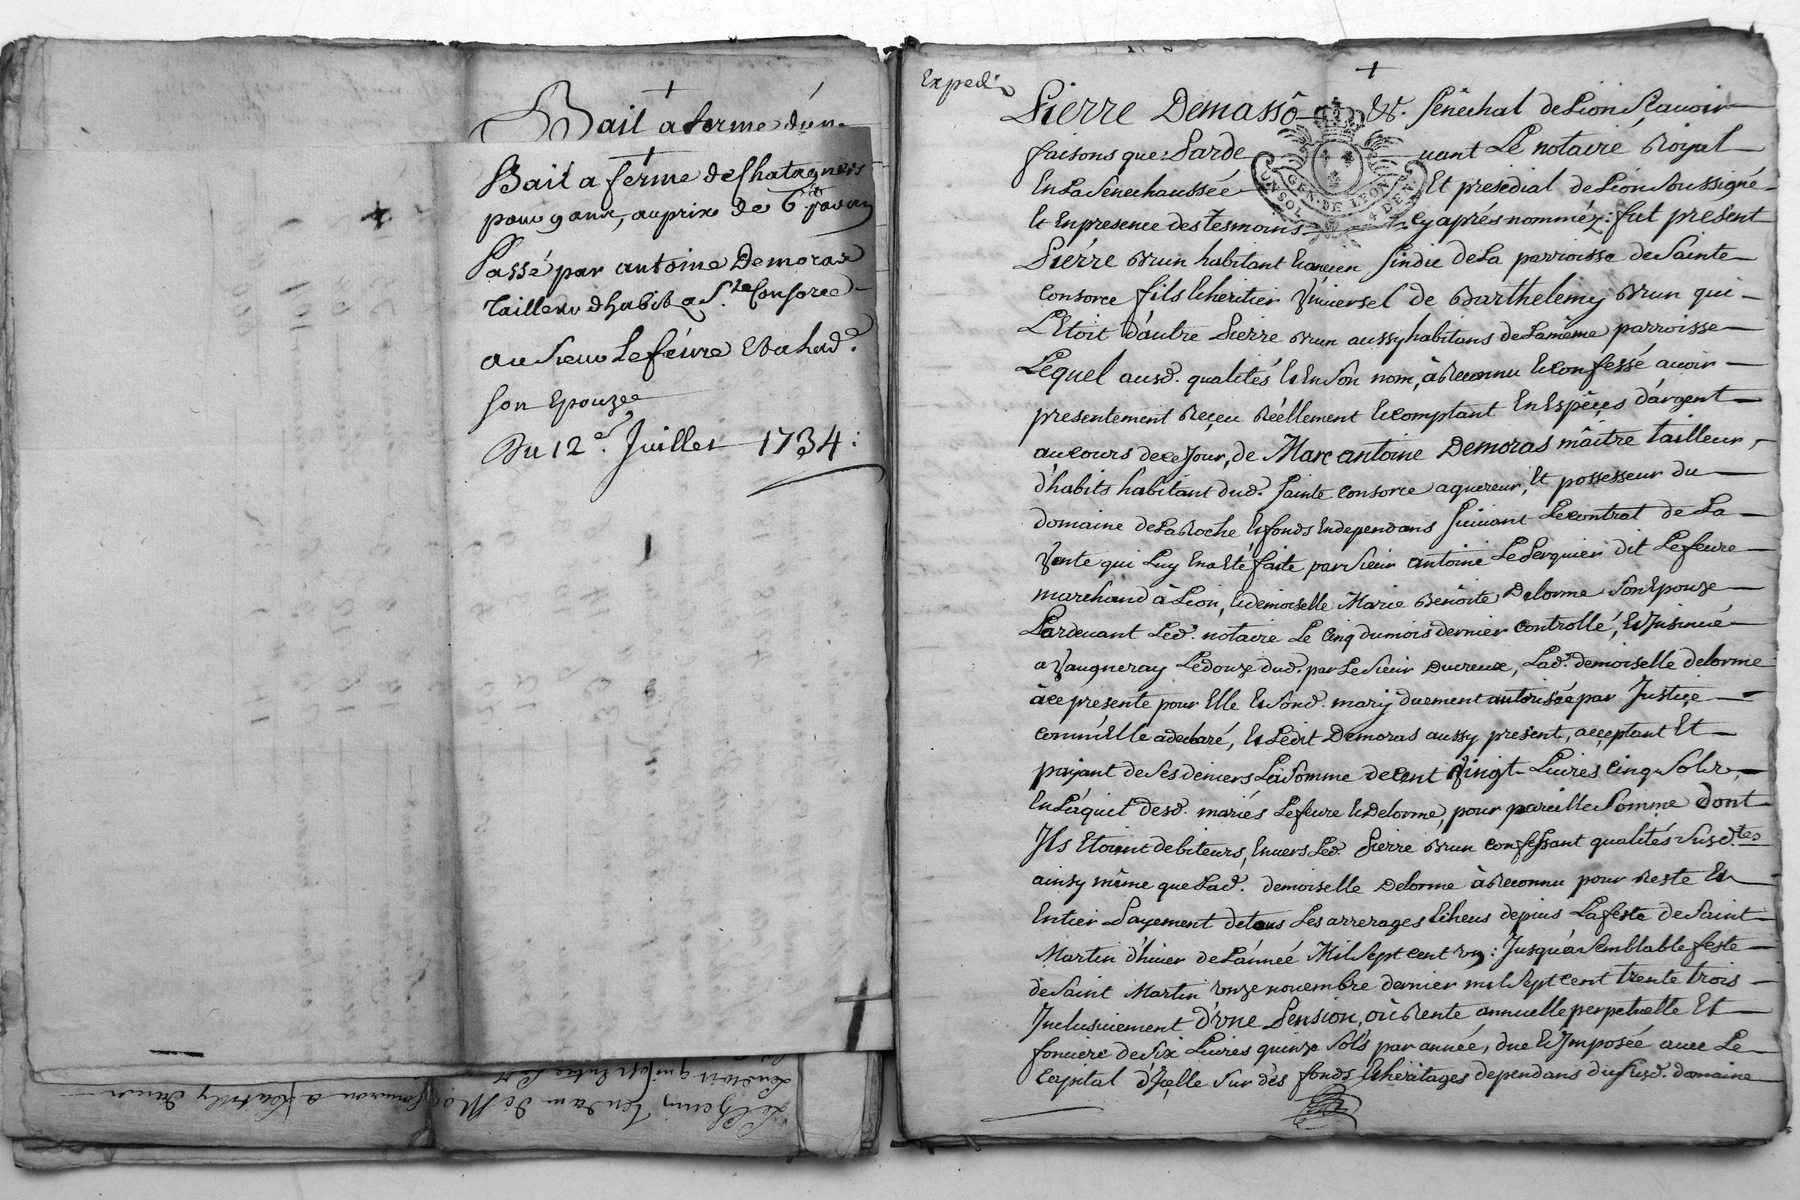 Bail a ferme d'un
Bail a ferme de Chatagners
pour 9 ans, au prix de 6
Passé par antoine Demoras
Tailleur d'habits a Ste Consorce
au Sieur Lefevre Et a lad.e
son Epouze
Du 12e. Juillet 1734:
Le Chemin tendant de
Expedi.
Pierre Demassô &. Senêchal de Lion Scavoir
faisons que: Parde uant Le notaire Roÿal
En La Senechaussée Et presidial de Lion Soussigné
Et En presence des tesmoins cy aprés nommèz: fut present
Pierre Brun habitant Et ancien Sindic de La parroisse de Sainte
Consorce fils Et heritier Vniuersel de Barthelemy Brun qui
L'Etoit d'autre Pierre Brun aussy habitans de La même parroisse
Lequel ausd. qualités Et En Son nom, à Reconnu Et confessé auoir
presentement Reçeu Réellement Et comptant En Espêces d'argent
au cours de ce Jour, de Marc antoine Demoras mâitre tailleur
d'habits habitant dud. Sainte Consorce aquereur, Et possesseur du
domaine de La Roche Et fonds En dependans Suiuant Le contrat de La
Vente qui Luy En a Eté faite par Sieur antoine Le Perquier dit Lefeure
marchand à Lion, Et demoiselle Marie Benôite Delorme Son Epouze
Pardeuant Led. notaire Le Cinq du mois dernier Controllé, Et Jnsinué
a Vaugneray Le douze dud. par Le Sieur Ducreux, Lad. demoiselle delorme
à ce presente pour Elle Et Sond. mary duement autorisée par Justiçe
comm'Elle a declaré, Et Ledit Demoras aussy present, acceptant Et
païant de Ses deniers La Somme de Cent Vingt Liures Cinq Sols
En L'aquit desd. mariés Lefeure Et Delorme, pour pareille Somme dont
Jls Etoient debiteurs, Enuers Led. Pierre Brun confessant qualités Susd.tes
ainsy même que Lad. demoiselle Delorme à Reconnu pour Reste Et
Entier Payement de tous Les arrerages Echeus depuis La feste de Saint
Martin d'hiuer de L'année Mil Sept cent Vn: Jusqu'a Semblable feste
de Saint Martin Vnze nouembre dernier mil Sept cent trente trois
Jnclusiuement d'Vne Pension, où Rente annuelle perpetuelle Et
fonciere de Six Liures quinze Sols par année, due Et Jmposée auec Le
Capital d'Jçelle Sur dès fonds Et heritages dependans du Susd. domaine